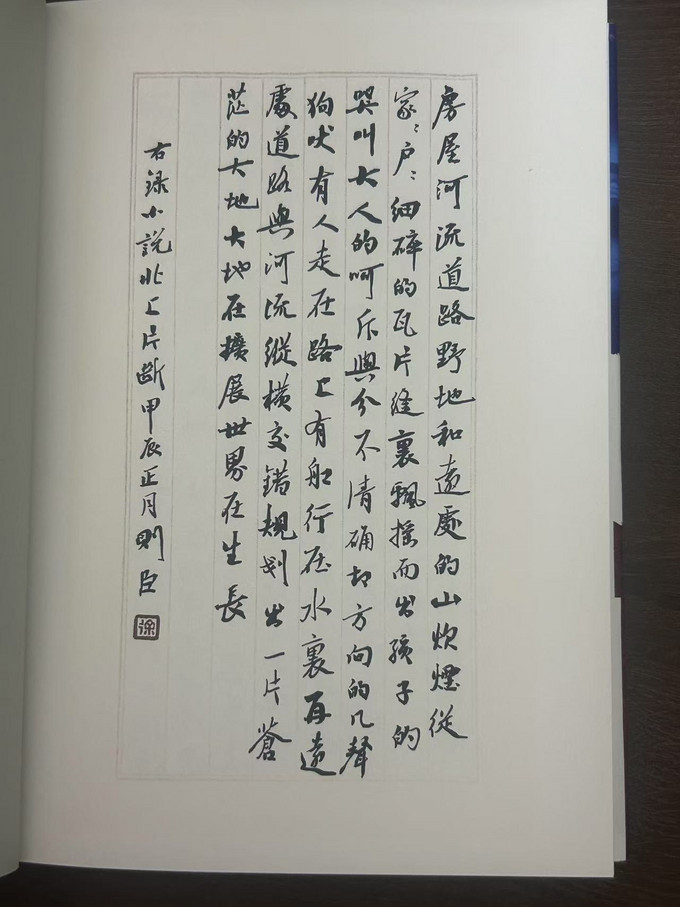 房屋河流道路野地和遠處的山炊煙從
家〻户〻细碎的瓦片縫裏飄摇而出孩子的
哭叫大人的呵斥與分不清确切方向的几聲
狗吠有人走在路上有船行在水裏再遠
處道路與河流縱横交錯規划出一片蒼
茫的大地大地在擴展世界在生長
右録小説北上片斷甲辰正月則臣
徐